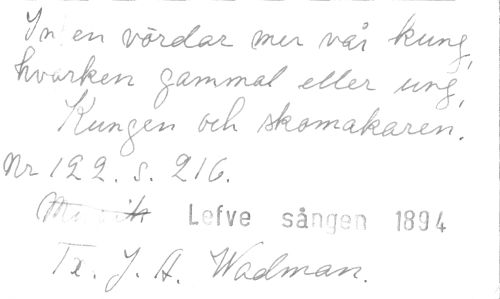 Ingen vördar mer vår kung,
hvarken gammal eller ung,
Kungen och skomakaren.
Nr 122. s. 216.
Musik Lefve sången 1894
Tx. J. A. Wadman.